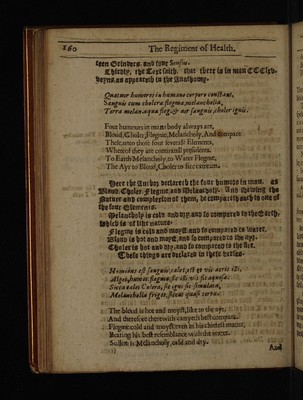 160 The Regiment of Health.
teen Grinders, and foure Sensus.
Thirdly, the Text saith, that there is in man CCClxv.
veynes, as appeareth in the Anathomy.
Quatuor humores in humano corpore constant,
Sanguis cum cholera, flegma, melancholia,
Terra melan. aqua fleg. & aer sanguis, choler ignis.
Four humours in mans body alwayes are,
Bloud, Choler, Flegme, Melancholy, And compare
These, unto those four severall Elements,
Whereof they are continuall
To Earth Melancholy, to Water Flegme,
The Ayr to Bloud, Choler to fire extream.
Here the Author declareth the four humors in man, as
Bloud, Choler, Flegme, and Melancholy. And
Nature and complexion of them, he compareth each to one of
the four Elements.
Melancholy is cold and dry, and so compared to the Earth,
which is of like nature.
Flegme is cold and moyst, and so compared to water.
Bloud is hot and moyst, and so compared to the ayr.
Choler is hot and dry, and so compared to the fire.
These things are declared in these verses.
Humidus est sanguis, calet, est vis aeris illi,
Alget, humet flegma, sic illi vis sit aquosa.
Sicca calet Colera, sic igni fit simulata,
Melancholia friget, siccat quasi terra.
The bloud is hot and moyst, like to the ayr,
And therefore therewith campeth best compare.
Flegme cold and moyst, even in his chiefest matter,
Bearing his best resemblance with the water.
Sullen is Melancholy, cold and dry.
And